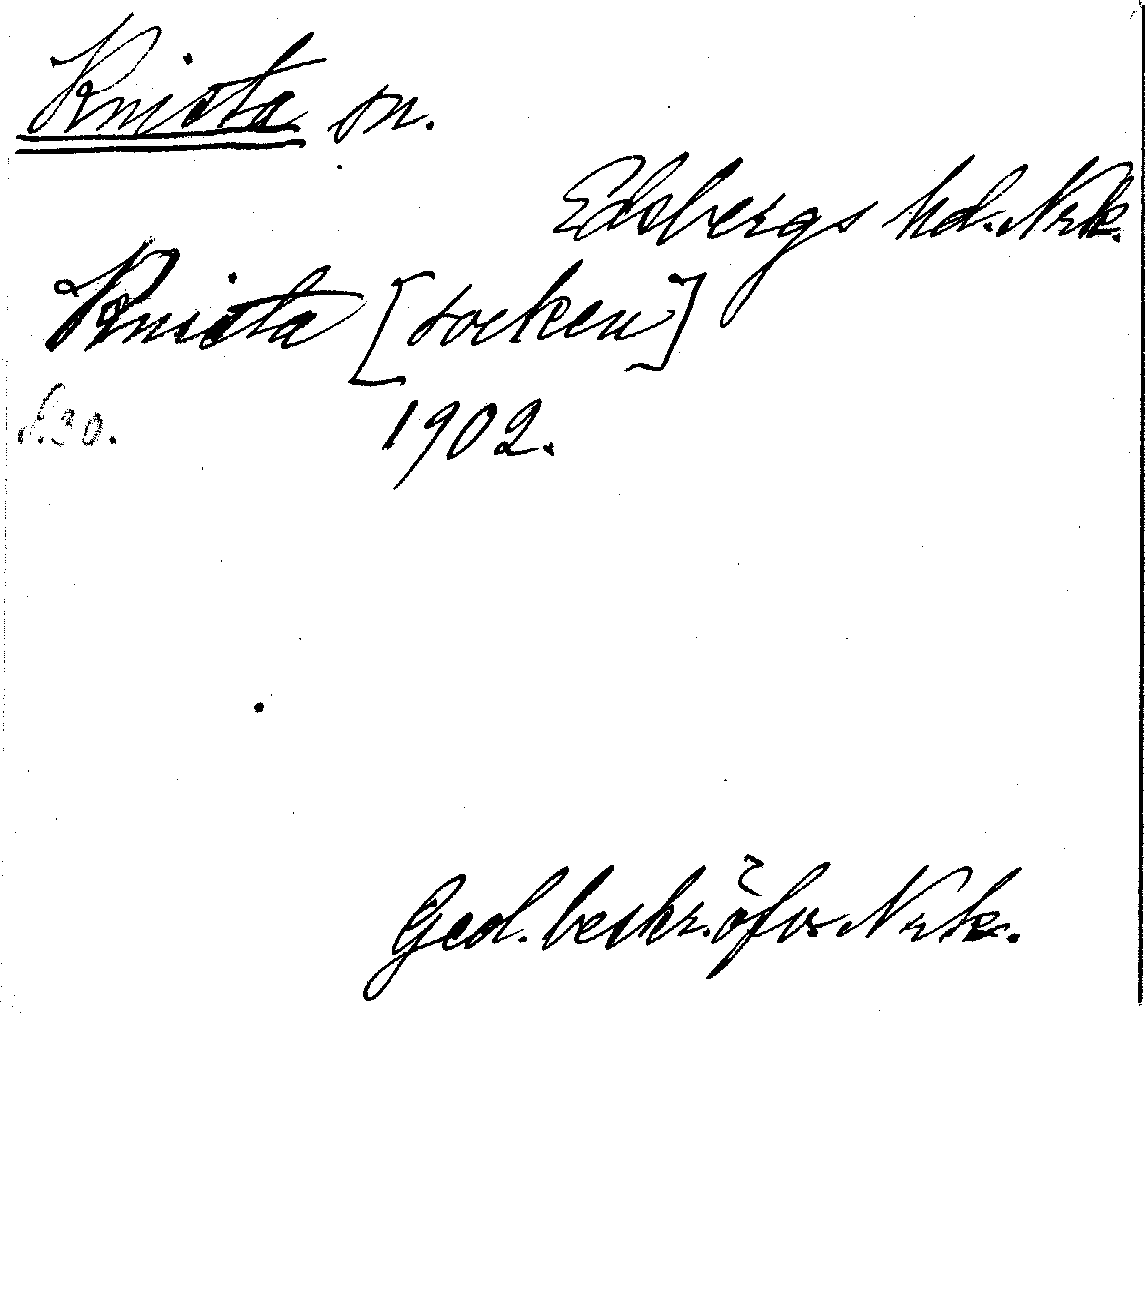 Knista sn.
Edsbergs hd. Nrk.
Knista [socken]
s. 30. 1902.
Geol. beskr. öfver Nrk.